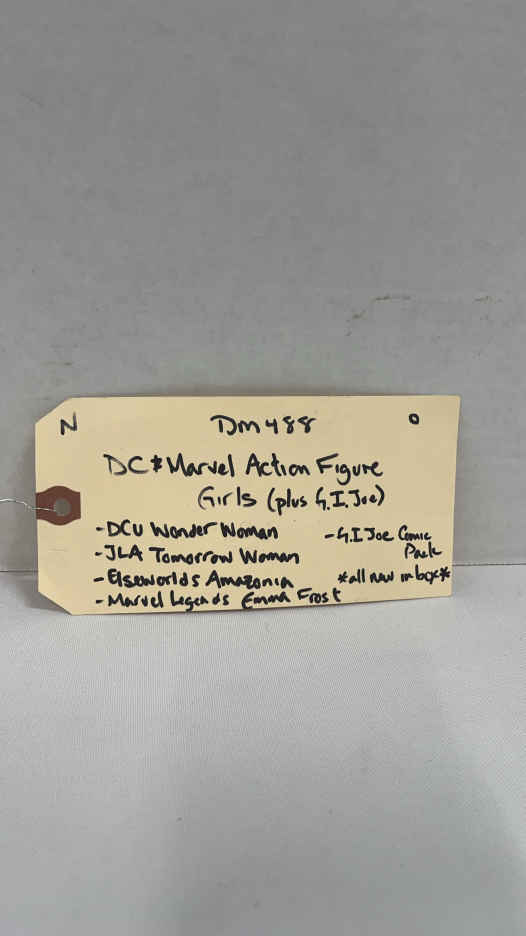 N DM488 O
DC * Marvel Action Figure
Girls (plus G.I. Joe)
- DCU Wonder Woman
- JLA Tomorrow Woman
- Elseworlds Amazonia
- Marvel Legends Emma Frost
- G.I Joe Comic
Pack
*all new in box*